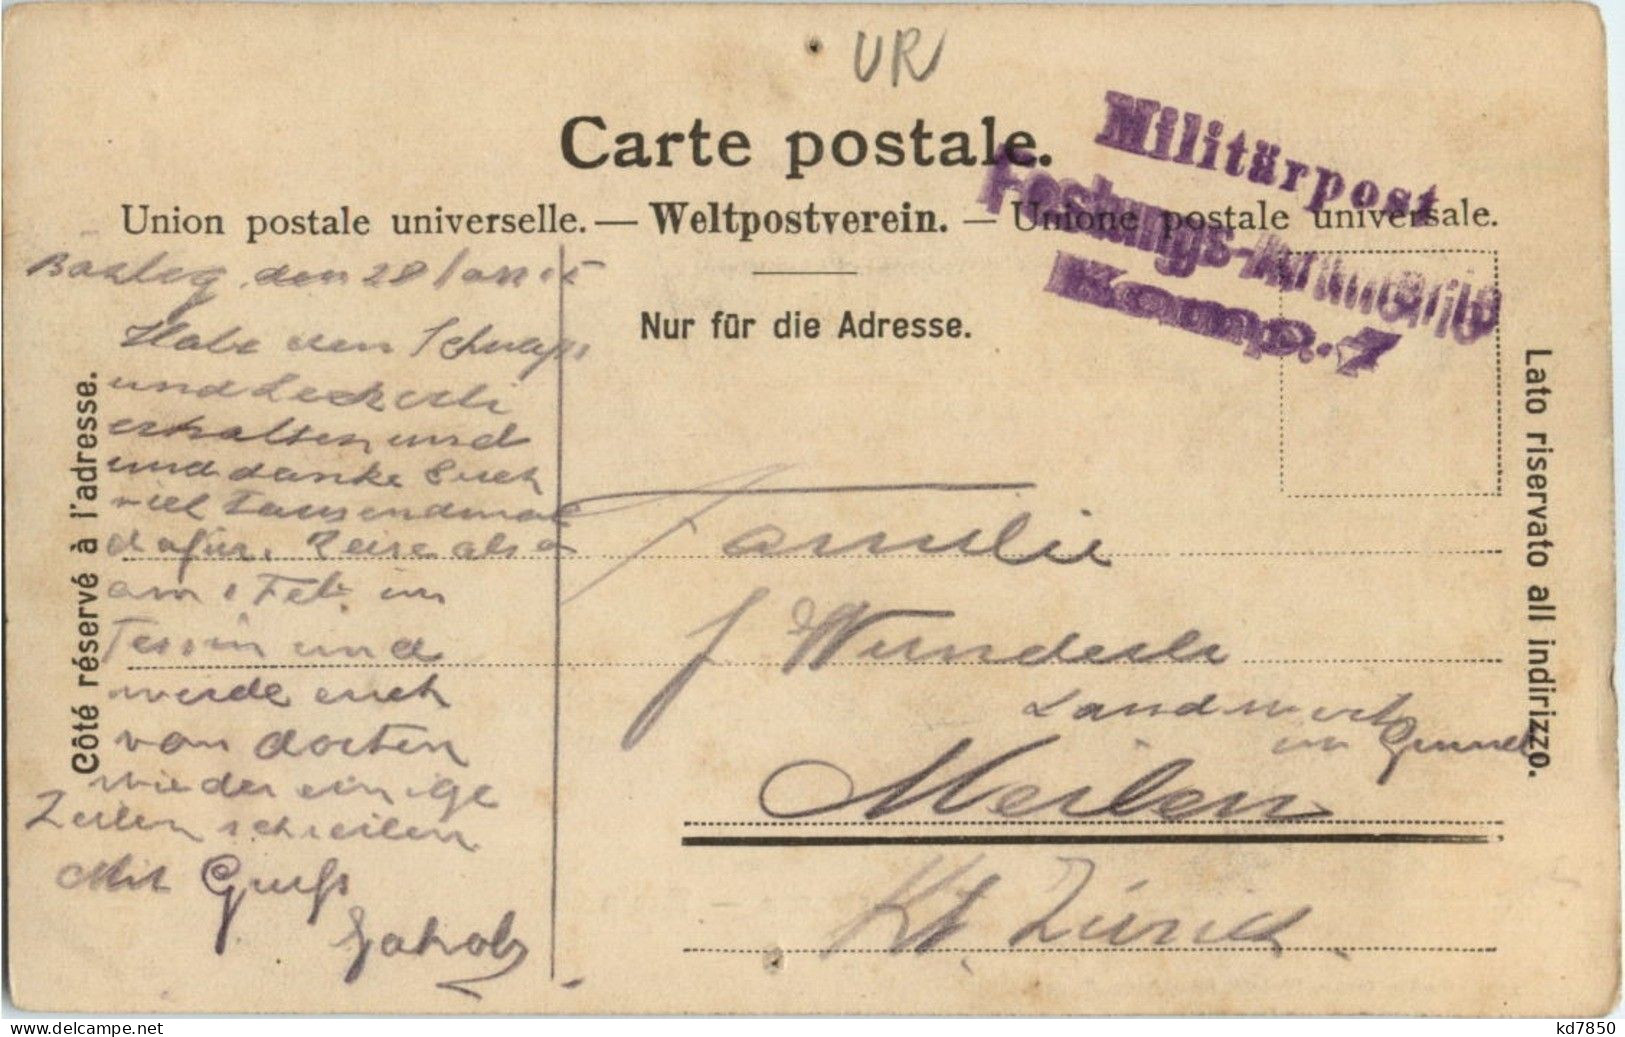 UR
Carte postale.
Militärpost
Festungs-Artillerie
Komp. 7
Union postale universelle. — Weltpostverein. — Unione postale universale.
Nur für die Adresse.
Côté réservé à l'adresse.
Lato riservato all indirizzo.
den 28
Habe den Schnaps
und Leckerli
erhalten und
und danke Euch
viel Tausendmal
dafür. Reise also
am 1 Feb. im
Tessin und
werde euch
von dorten
wieder einige
Zeilen schreiben
Mit Gruß
Jakob
Familie
J. Wunderli
Landwirt
im Grund
Meilen
Kt. Zürich
www.delcampe.net
kd7850